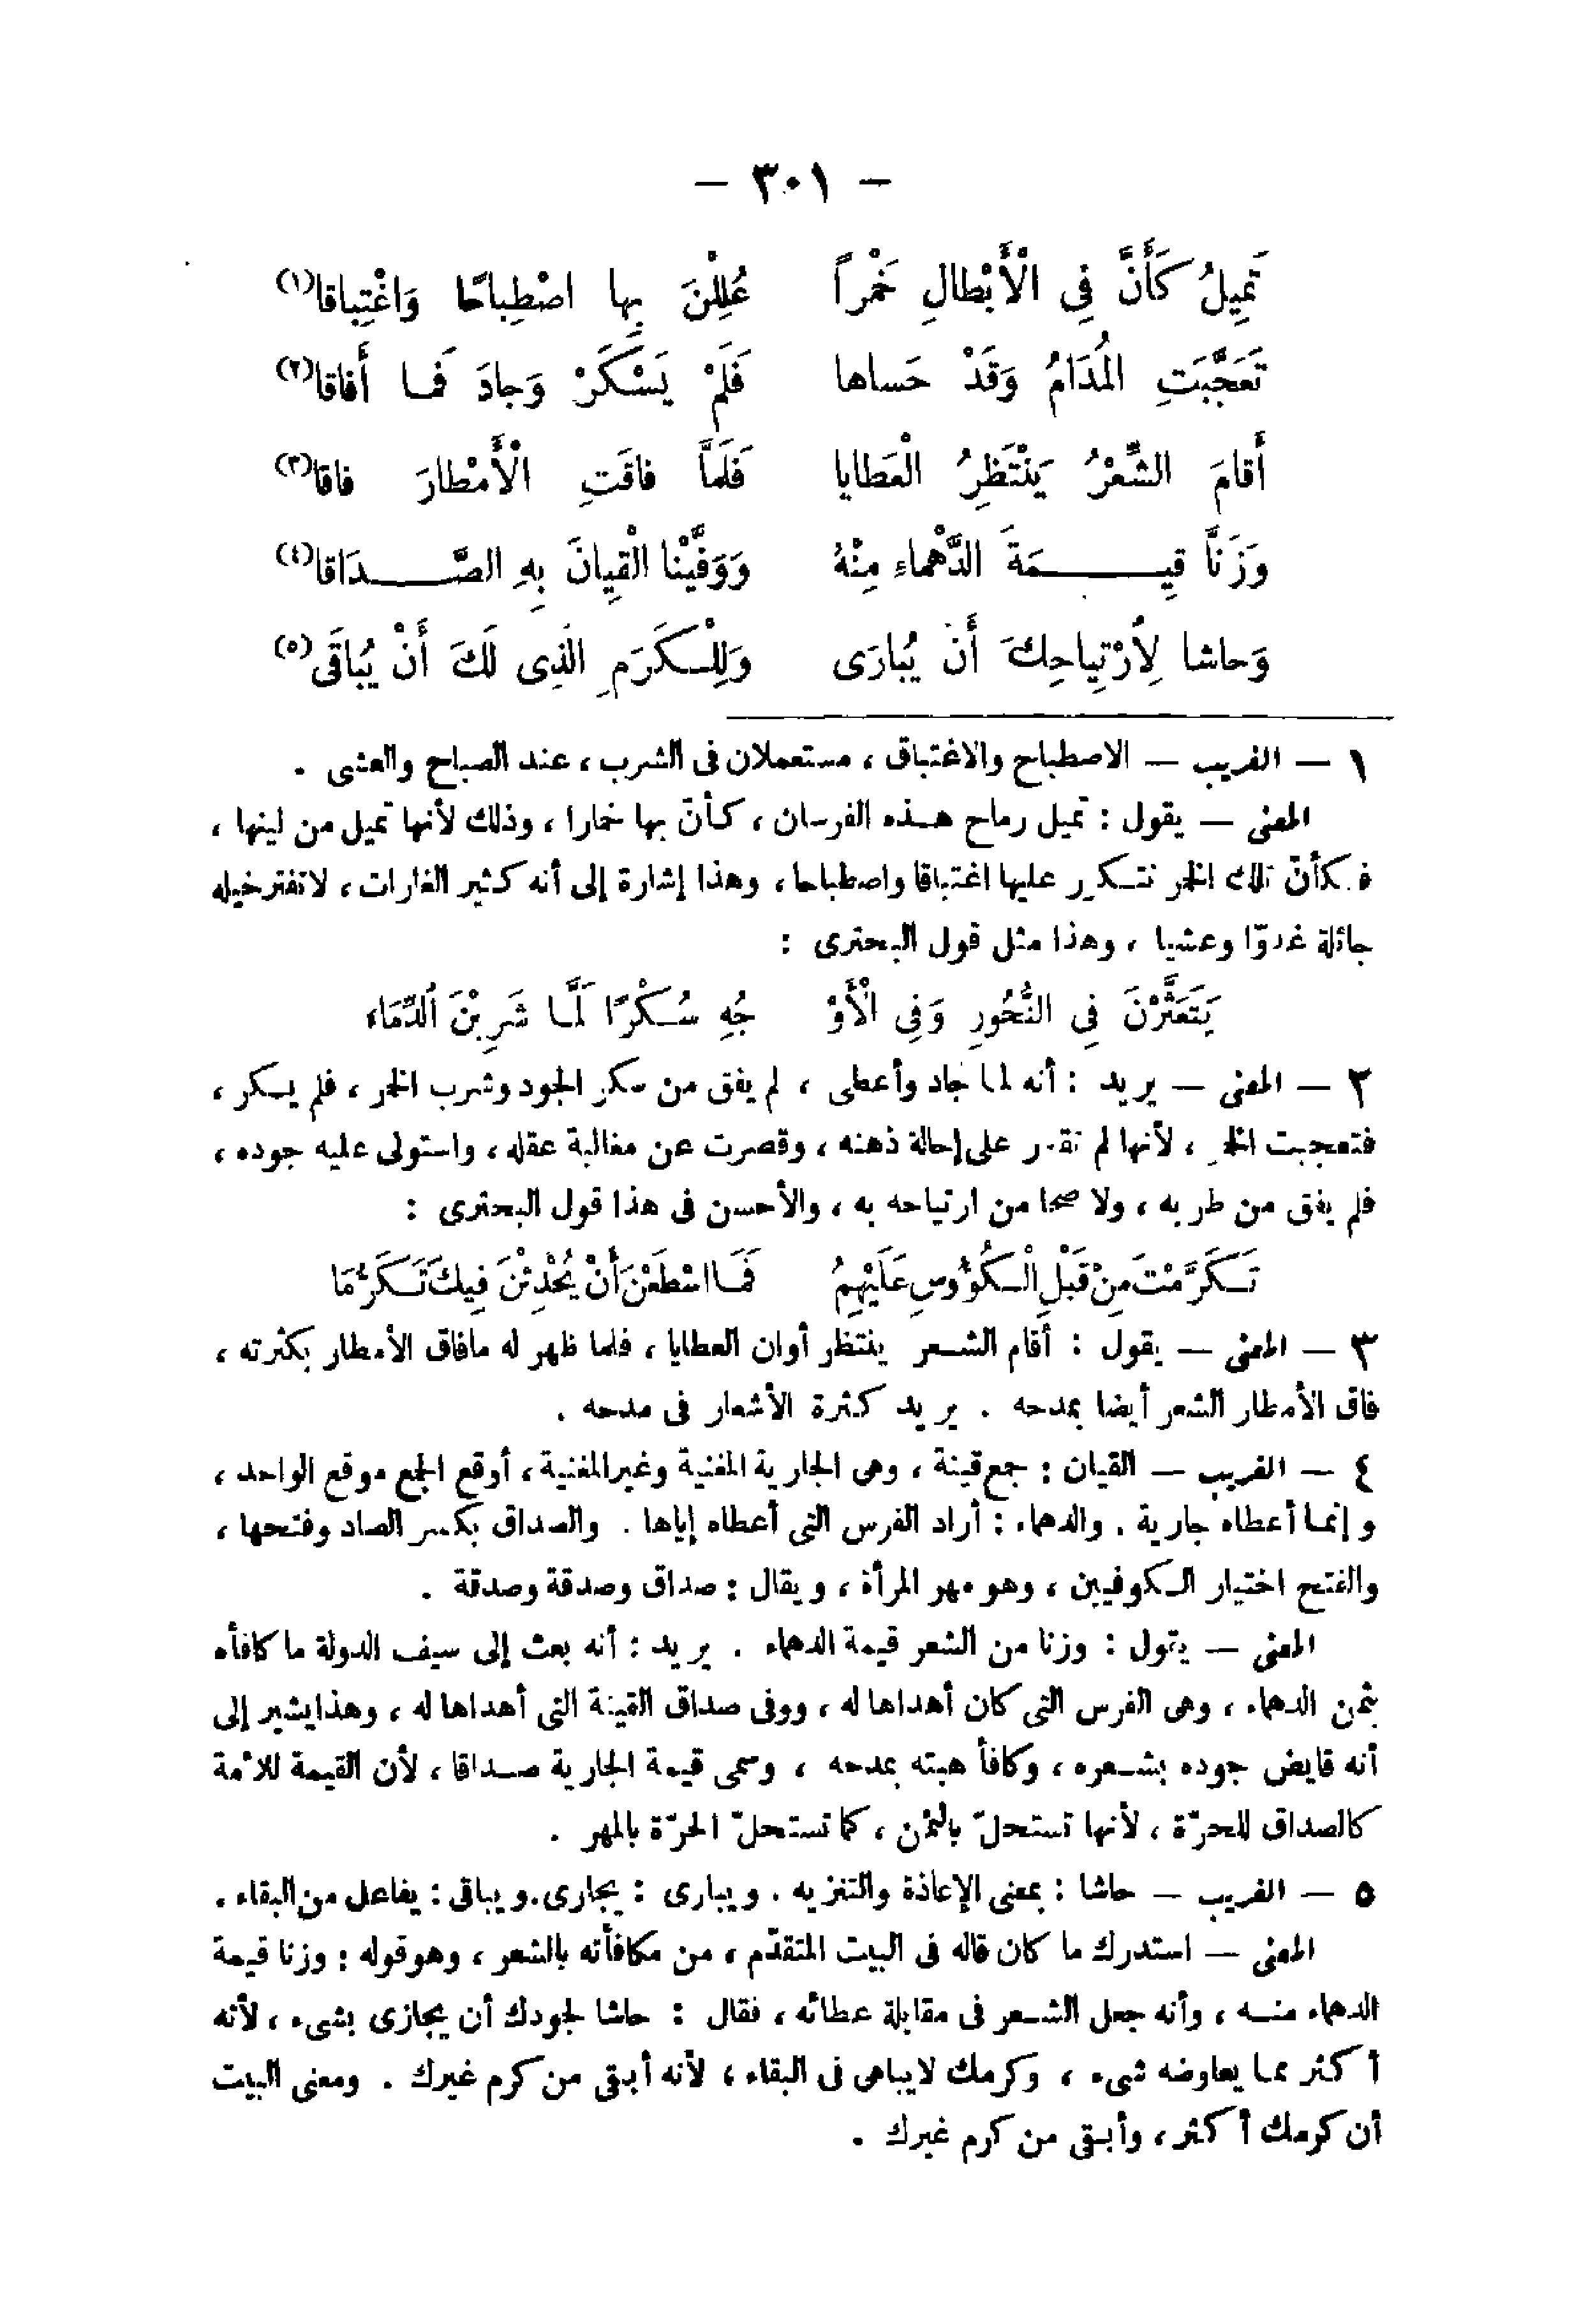 — ٣٠١ —
تَمِيلُ كَأَنَّ فِى الْأَبْطالِ خَمْراً عُلِلْنَ بِها اصْطِباحًا وَاغْتِباقا(١)
تَعَجَّبَتِ المُدَامُ وَقَدْ حَساها فَلَمْ يَسْكَرْ وَجادَ فَما أَفاقا(٢)
أَقامَ الشِّعْرُ يَنْتَظِرُ الْعَطايا فَلَمَّا فاقَتِ الْأَمْطارَ فاقا(٣)
وَزَنَّا قِيمَةَ الدَّهْماءِ مِنْهُ وَوَفَّيْنا الْقِيانَ بِهِ الصَّدَاقا(٤)
وَحاشا لِأَرْتِياحِكَ أَن يُبارَى وَلِلْكَرَمِ الَّذِى لَكَ أَنْ يُباقَى(٥)
١ — الغريب — الاصطباح والاغتباق ، مستعملان فى الشرب ، عند الصباح والعشى .
المعنى — يقول : تميل رماح هذه الفرسان ، كأنّ بها خمارا ، وذلك لأنها تميل من لينها ،
فكأنّ تلك الخمر تتكرر عليها اغتباقا واصطباحا ، وهذا إشارة إلى أنه كثير الغارات ، لاتفتر خيله
جائلة غدوّا وعشيا ، وهذا مثل قول البحترى :
يَتَعَثَّرْنَ فِى النُّحُورِ وَفِى الْأَوْ جُهِ سُكْرًا لَمَّا شَرِبْنَ الدِّمَاءَ
٢ — المعنى — يريد : أنه لما جاد وأعطى ، لم يفق من سكر الجود وشرب الخمر ، فلم يسكر ،
فتعجبت الخمر ، لأنها لم تقدر على إحالة ذهنه ، وقصرت عن مغالبة عقله ، واستولى عليه جوده ،
فلم يفق من طربه ، ولا صحا من ارتياحه به ، والأحسن فى هذا قول البحترى :
تَكَرَّمْتَ مِنْ قَبْلِ الْكُؤُوسِ عَلَيْهِمُ فَمَا اسْطَعْنَ أَنْ يُحْدِثْنَ فِيكَ تَكَرُّمَا
٣ — المعنى — يقول : أقام الشعر ينتظر أوان العطايا ، فلما ظهر له مافاق الأمطار بكثرته ،
فاق الأمطار الشعر أيضا بمدحه . يريد كثرة الأشعار فى مدحه .
٤ — الغريب — القيان : جمع قينة ، وهى الجارية المغنية وغير المغنية ، أوقع الجمع موقع الواحد ،
وإنما أعطاه جارية . والدهماء : أراد الفرس التى أعطاه إياها . والصداق بكسر الصاد وفتحها ،
والفتح اختيار الكوفيين ، وهو مهر المرأة ، ويقال : صداق وصدقة وصدقة .
المعنى — يقول : وزنا من الشعر قيمة الدهماء . يريد : أنه بعث إلى سيف الدولة ما كافأه
بثمن الدهماء ، وهى الفرس التى كان أهداها له ، ووفى صداق القينة التى أهداها له ، وهذا يشير إلى
أنه قايض جوده بشعره ، وكافأ هبته بمدحه ، وسمى قيمة الجارية صداقا ، لأن القيمة للأمة
كالصداق للحرّة ، لأنها تستحلّ بالثمن ، كما تستحلّ الحرّة بالمهر .
٥ — الغريب — حاشا : بمعنى الإعاذة والتنزيه . ويبارى : يجارى . ويباقى : يفاعل من البقاء .
المعنى — استدرك ما كان قاله فى البيت المتقدّم ، من مكافأته بالشعر ، وهو قوله : وزنا قيمة
الدهماء منه ، وأنه جعل الشعر فى مقابلة عطائه ، فقال : حاشا لجودك أن يجازى بشىء ، لأنه
أكثر مما يعاوضه شىء ، وكرمك لايباهى فى البقاء ؛ لأنه أبقى من كرم غيرك . ومعنى البيت
أن كرمك أكثر ، وأبقى من كرم غيرك .